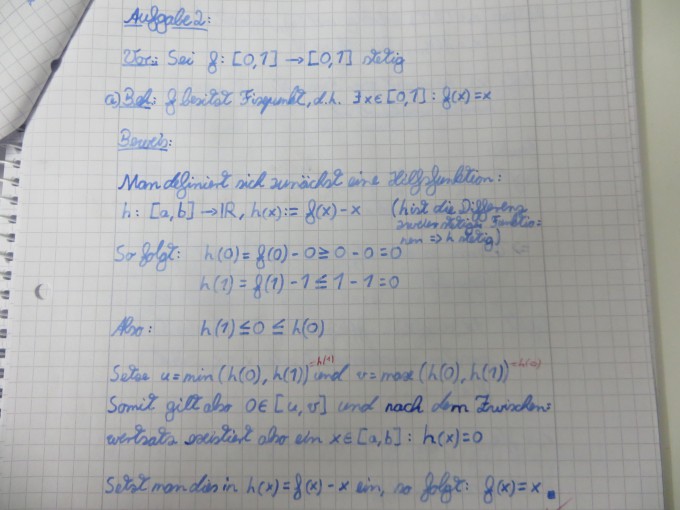 Aufgabe 2:
Vor.: Sei f: [0,1] → [0,1] stetig
a) Beh.: f besitzt Fixpunkt, d.h. ∃ x ∈ [0,1] : f(x) = x
Beweis:
Man definiert sich zunächst eine Hilfsfunktion:
h: [a,b] → ℝ, h(x) := f(x) - x (h ist die Differenz
zweier stetiger Funktio=
nen => h stetig)
So folgt: h(0) = f(0) - 0 ≥ 0 - 0 = 0
h(1) = f(1) - 1 ≤ 1 - 1 = 0
Also: h(1) ≤ 0 ≤ h(0)
Setze u = min (h(0), h(1)) =h(1) und v = max (h(0), h(1)) =h(0)
Somit gilt also 0 ∈ [u, v] und nach dem Zwischen=
wertsatz existiert also ein x ∈ [a,b] : h(x) = 0
Setzt man dies in h(x) = f(x) - x ein, so folgt: f(x) = x ■